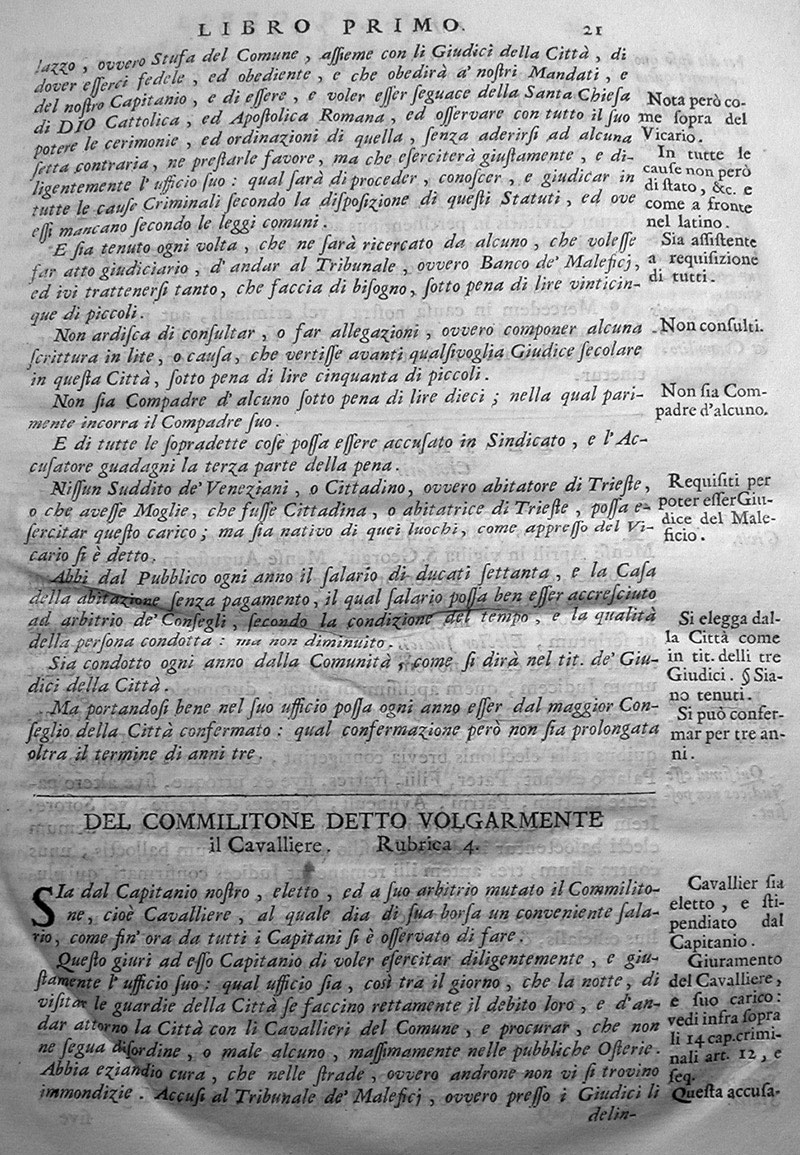 LIBRO PRIMO. 21
lazzo, ovvero Stufa del Comune, assieme con li Giudici della Città, di
dover esserci fedele, ed obediente, e che obedirà a' nostri Mandati, e
del nostro Capitanio, e di essere, e voler esser seguace della Santa Chiesa
di DIO Cattolica, ed Apostolica Romana, ed osservare con tutto il suo
potere le cerimonie, ed ordinazioni di quella, senza aderirsi ad alcuna
setta contraria, ne prestarle favore, ma che eserciterà giustamente, e di-
ligentemente l' ufficio suo: qual sarà di proceder, conoscer, e giudicar in
tutte le cause Criminali secondo la disposizione di questi Statuti, ed ove
essi mancano secondo le leggi comuni.
E sia tenuto ogni volta, che ne sarà ricercato da alcuno, che volesse
far atto giudiciario, d' andar al Tribunale, ovvero Banco de' Maleficj,
ed ivi trattenersi tanto, che faccia di bisogno, sotto pena di lire vinticin-
que di piccoli.
Non ardisca di consultar, o far allegazioni, ovvero componer alcuna
scrittura in lite, o causa, che vertisse avanti qualsivoglia Giudice secolare
in questa Città, sotto pena di lire cinquanta di piccoli.
Non sia Compadre d' alcuno sotto pena di lire dieci; nella qual pari-
mente incorra il Compadre suo.
E di tutte le sopradette cose possa essere accusato in Sindicato, e l' Ac-
cusatore guadagni la terza parte della pena.
Nissun Suddito de' Veneziani, o Cittadino, ovvero abitatore di Trieste,
o che avesse Moglie, che fusse Cittadina, o abitatrice di Trieste, possa e-
sercitar questo carico; ma sia nativo di quei luochi, come appresso del Vi-
cario si è detto.
Abbi dal Pubblico ogni anno il salario di ducati settanta, e la Casa
della abitazione senza pagamento, il qual salario possa ben esser accresciuto
ad arbitrio de' Consegli, secondo la condizione del tempo, e la qualità
della persona condotta: ma non diminuito.
Sia condotto ogni anno dalla Comunità, come si dirà nel tit. de' Giu-
dici della Città.
Ma portandosi bene nel suo ufficio possa ogni anno esser dal maggior Con-
seglio della Città confermato: qual confermazione però non sia prolongata
oltra il termine di anni tre.
Nota però co-
me sopra del
Vicario.
In tutte le
cause non però
di stato, &c. e
come a fronte
nel latino.
Sia assistente
a requisizione
di tutti.
Non consulti.
Non sia Com-
padre d'alcuno.
Requisiti per
poter esser Giu-
dice del Male-
ficio.
Si elegga dal-
la Città come
in tit. delli tre
Giudici. § Sia-
no tenuti.
Si può confer-
mar per tre an-
ni.
DEL COMMILITONE DETTO VOLGARMENTE
il Cavalliere. Rubrica 4.
SIa dal Capitanio nostro, eletto, ed a suo arbitrio mutato il Commilito-
ne, cioè Cavalliere, al quale dia di sua borsa un conveniente sala-
rio, come fin' ora da tutti i Capitani si è osservato di fare.
Questo giuri ad esso Capitanio di voler esercitar diligentemente, e giu-
stamente l' ufficio suo: qual ufficio sia, così tra il giorno, che la notte, di
visitar le guardie della Città se faccino rettamente il debito loro, e d' an-
dar attorno la Città con li Cavallieri del Comune, e procurar, che non
ne segua disordine, o male alcuno, massimamente nelle pubbliche Osterie.
Abbia eziandio cura, che nelle strade, ovvero androne non vi si trovino
immondizie. Accusi al Tribunale de' Maleficj, ovvero presso i Giudici li
delin-
Cavallier sia
eletto, e sti-
pendiato dal
Capitanio.
Giuramento
del Cavalliere,
e suo carico:
vedi infra sopra
li 14 cap. crimi-
nali art. 12, e
seq.
Questa accusa-